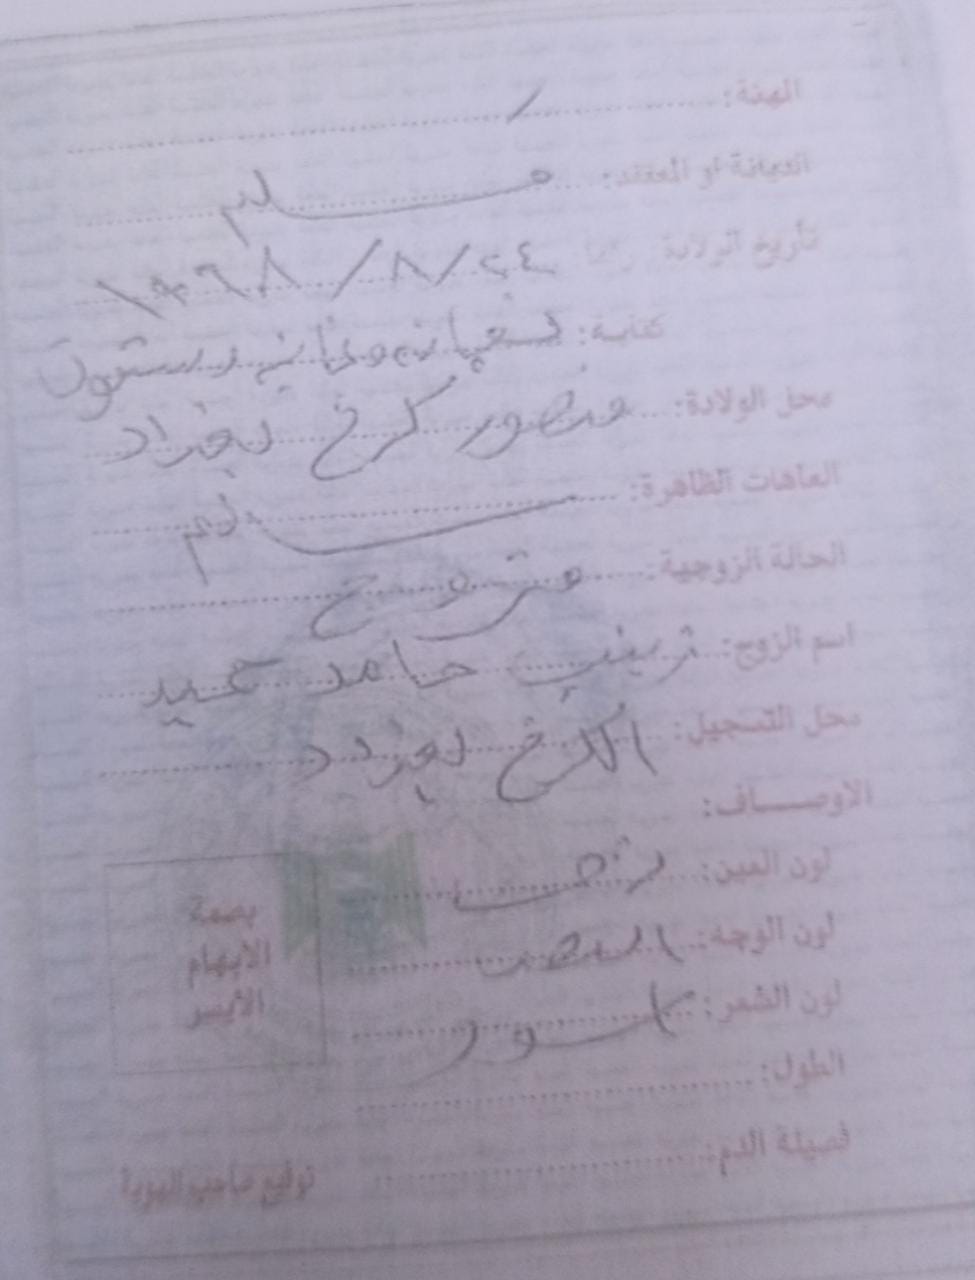 المهنة: /
الديانة او المعتقد: مسلم
تأريخ الولادة رقما ٢٤/٨/١٩٦٨
كتابة: تسعمائه وثمانيه وستون
محل الولادة: منصور كرخ بغداد
العاهات الظاهرة: سالم
الحالة الزوجية: متزوج
اسم الزوج: زينب حامد عبيد
محل التسجيل: الكرخ بغداد
الاوصــاف:
لون العين:
لون الوجه: ابيض
لون الشعر: اسود
الطول:
فصيلة الدم:
بصمة
الابهام
الأيسر
توقيع صاحب الهوية